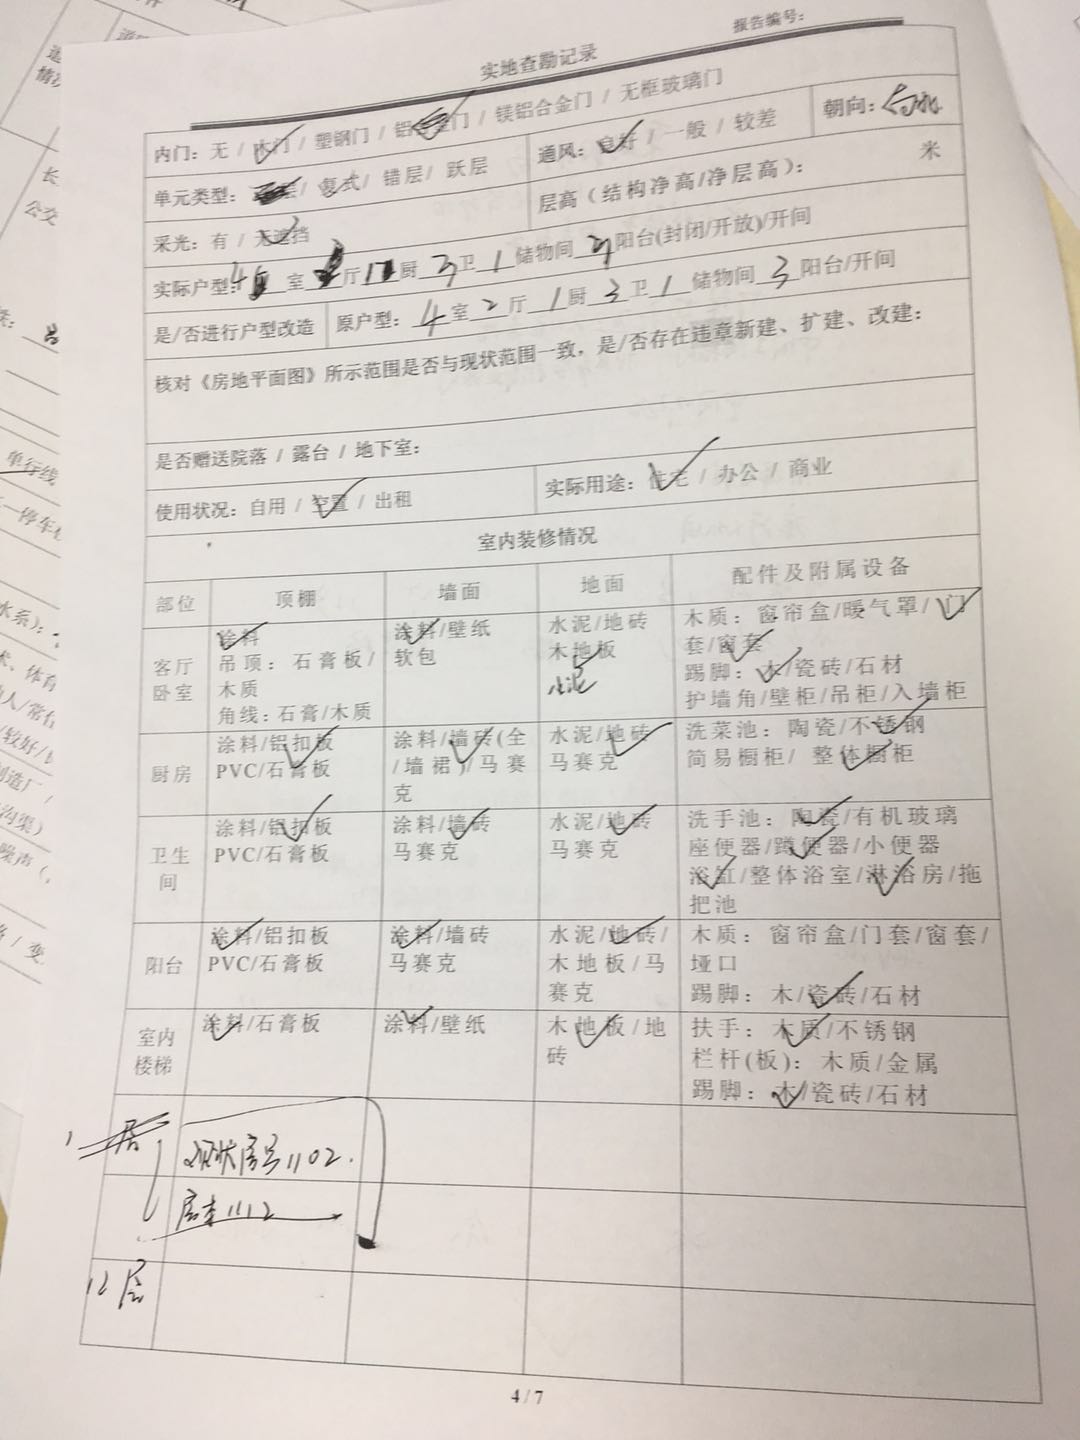 报告编号：
实地查勘记录
内门：无 / 木门 / 塑钢门 / 铝合金门 / 镁铝合金门 / 无框玻璃门
通风：良好 / 一般 / 较差
朝向：南北
单元类型： / 复式/ 错层/ 跃层
层高（结构净高/净层高）： 米
采光：有 / 无遮挡
实际户型：4 室 厅 1 厨 3 卫 1 储物间 阳台(封闭/开放)/开间
是/否进行户型改造
原户型：4 室 2 厅 1 厨 3 卫 1 储物间 3 阳台/开间
核对《房地平面图》所示范围是否与现状范围一致，是/否存在违章新建、扩建、改建：
是否赠送院落 / 露台 / 地下室：
使用状况：自用 / 空置 / 出租
实际用途：住宅 / 办公 / 商业
室内装修情况
部位 顶棚 墙面 地面 配件及附属设备
客厅
卧室
涂料
吊顶：石膏板/
木质
角线：石膏/木质
涂料/壁纸
软包
水泥/地砖
木地板
水泥
木质：窗帘盒/暖气罩/门
套/窗套
踢脚：木/瓷砖/石材
护墙角/壁柜/吊柜/入墙柜
厨房
涂料/铝扣板
PVC/石膏板
涂料/墙砖(全
/墙裙)/马赛
克
水泥/地砖
马赛克
洗菜池：陶瓷/不锈钢
简易橱柜/ 整体橱柜
卫生
间
涂料/铝扣板
PVC/石膏板
涂料/墙砖
马赛克
水泥/地砖
马赛克
洗手池：陶瓷/有机玻璃
座便器/蹲便器/小便器
浴缸/整体浴室/淋浴房/拖
把池
阳台
涂料/铝扣板
PVC/石膏板
涂料/墙砖
马赛克
水泥/地砖/
木地板/马
赛克
木质：窗帘盒/门套/窗套/
垭口
踢脚：木/瓷砖/石材
室内
楼梯
涂料/石膏板
涂料/壁纸
木地板/地
砖
扶手：木质/不锈钢
栏杆(板)：木质/金属
踢脚：木/瓷砖/石材
现状房号1102.
房本1112
12层
4 / 7